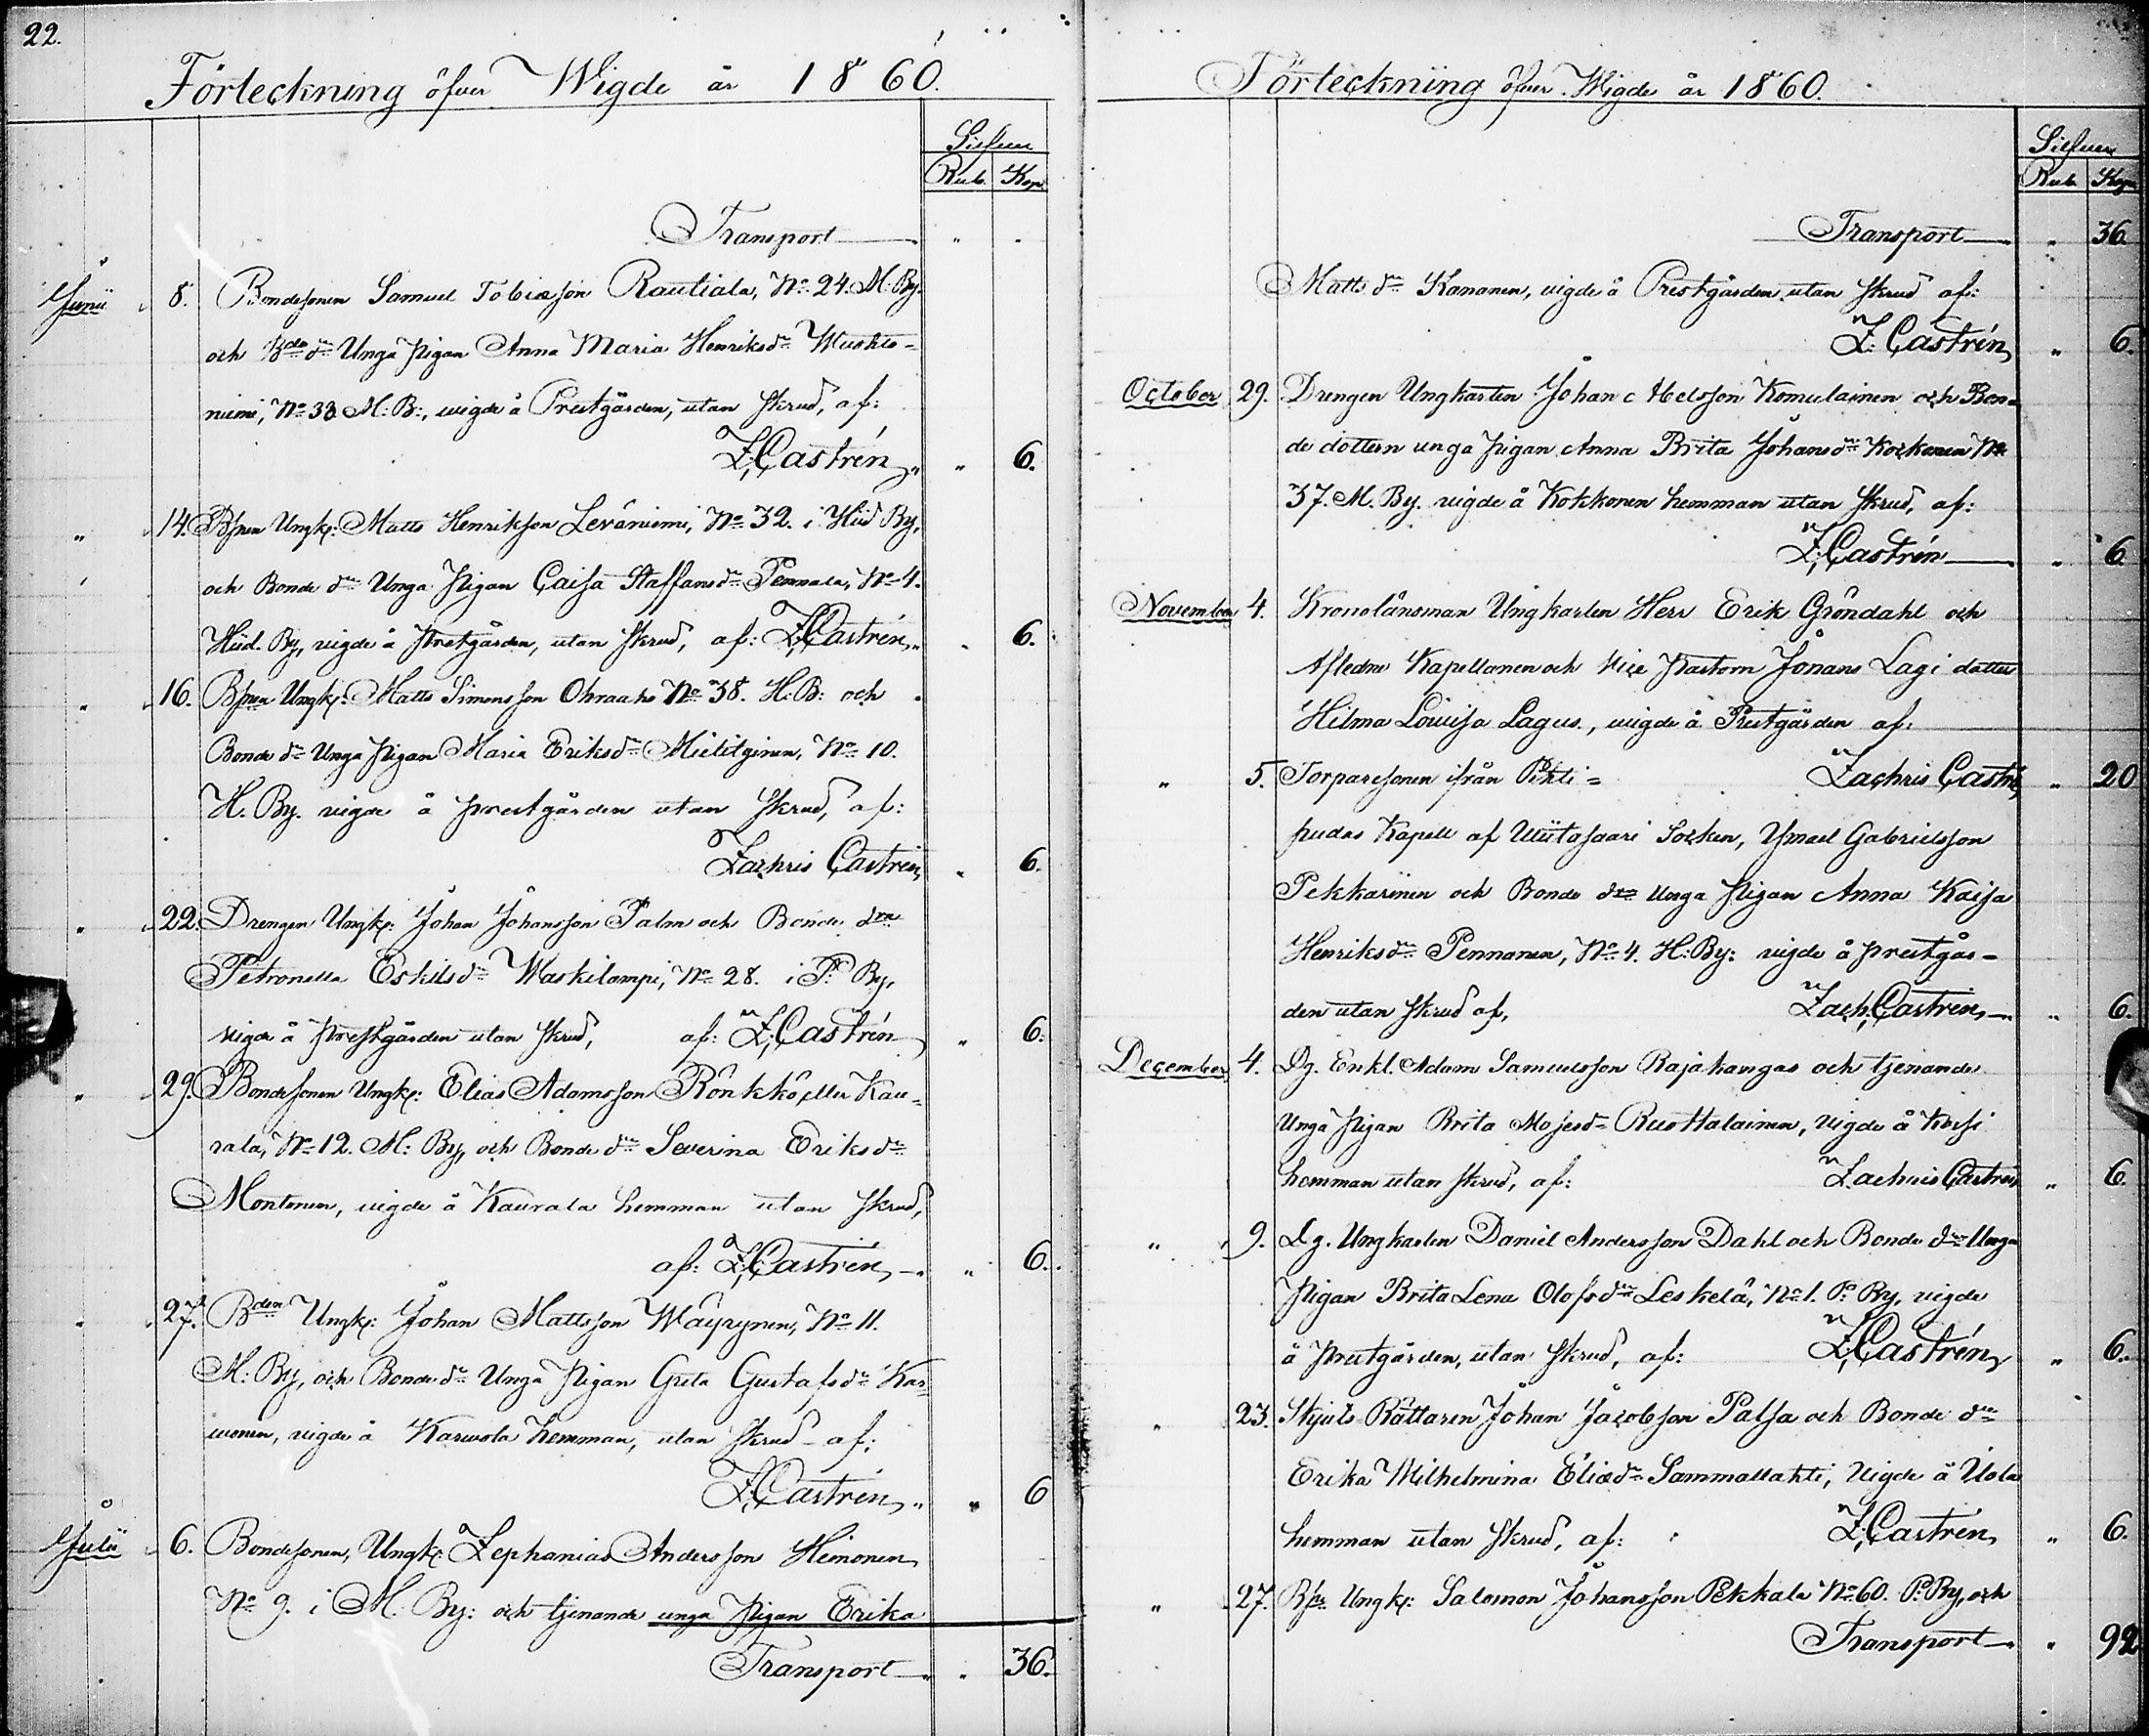 22.
Förteckning öfver Wigde år 1860.
Silfver
Rub. Kop.
Transport " "
Junii 8. Bondesonen Samuel Tobiasson Rautiala, No 24. M. By.
och Bde dr Unga Pigan Anna Maria Henriksdr Wuohto-
niemi, No 33 M: B:, vigde å Prestgården, utan skrud, af:
Z. Castrén " 6.
" 14. Bsonen Ungk: Matts Henriksson Leväniemi, No 32. i Hiid By,
och Bonde dr Unga Pigan Caisa Staffansdr Pennala, No 4.
Hiid. By, vigde å Prestgården, utan skrud, af: Z. Castrén " 6.
" 16. Bsonen Ungk: Matts Simonsson Ohraaho No 38. H: B: och
Bonde dr Unga Pigan Maria Eriksdr Mietitginen, No 10.
H. By. vigde å prestgården utan skrud, af:
Zachris Castrén " 6.
" 22. Drengen Ungk: Johan Johansson Palm och Bonde drn
Petronella Eskilsdr Waskilampi, No 28. i P. By,
vigde å Prestgården utan skrud, af: Z. Castrén " 6.
" 29. Bondesonen Ungk: Elias Adamsson Rönkkö eller Kau-
rala, No 12. M: By, och Bonde dr Severina Eriksdr
Montonen, vigde å Kaurala hemman utan skrud,
af: Z. Castrén " 6.
" 27. Bden Ungk: Johan Mattsson Wäyrynen, No 11.
M: By, och Bonde dr Unga Pigan Greta Gustafsdr Kar-
wonen, vigde å Karwola hemman, utan skrud af:
Z. Castrén " 6
Julii 6. Bondesonen, Ungk: Zephanias Andersson Heinonen
No 9. i M. By: och tjenande unga Pigan Erika
Transport " 36.
Förteckning öfver Wigde år 1860.
Silfver
Rub. Kop.
Transport " 36.
Matts dr Kananen, vigde å Prestgården utan skrud af:
Z. Castrén " 6.
October 29. Drengen Ungkarlen Johan c Abelsson Komulainen och Bon-
de dottern unga Pigan Anna Brita Johansdr Kokkonen No
37. M. By. vigde å Kokkonen hemman utan skrud, af:
Z. Castrén " 6
November 4. Kronolänsman Ungkarlen Herr Erik Gröndahl och
Afledne Kapellanen och vice Pastorn Jonans Lagi dotter
Hilma Lovisa Lagus, vigde å Prestgården af:
" 5. Torparesonen ifrån Pihti= Zachris Castrén " 20
pudas Kapell af Wiitasaari Socken, Ismael Gabrielsson
Pekkarinen och Bonde drn Unga Pigan Anna Kaisa
Henriksdr Pennanen, No 4. H: By: vigde å prestgår-
den utan skrud af, Zach. Castrén " 6.
December 4. Dg. Enkl. Adam Samuelsson Rajakangas och tjenande
Unga Pigan Brita Mosesdr Ruottalainen, vigde å
hemman utan skrud, af: Zachris Castrén " 6.
" 9. Dg. Ungkarlen Daniel Andersson Dahl och Bonde dr Unga
Pigan Brita Lena Olofsdr Leskelä, No 1. P. By, vigde
å prestgården, utan skrud, af: Z. Castrén " 6.
" 23. Skjuts Rättaren Johan Jacobsson Palsa och Bonde dr
Erika Wilhelmina Eliædr Sammallahti, vigde å
hemman utan skrud, af: Z. Castrén " 6.
" 27. Bsn Ungk: Salomon Johansson Pekkala No 60. P. By, och
Transport " 92